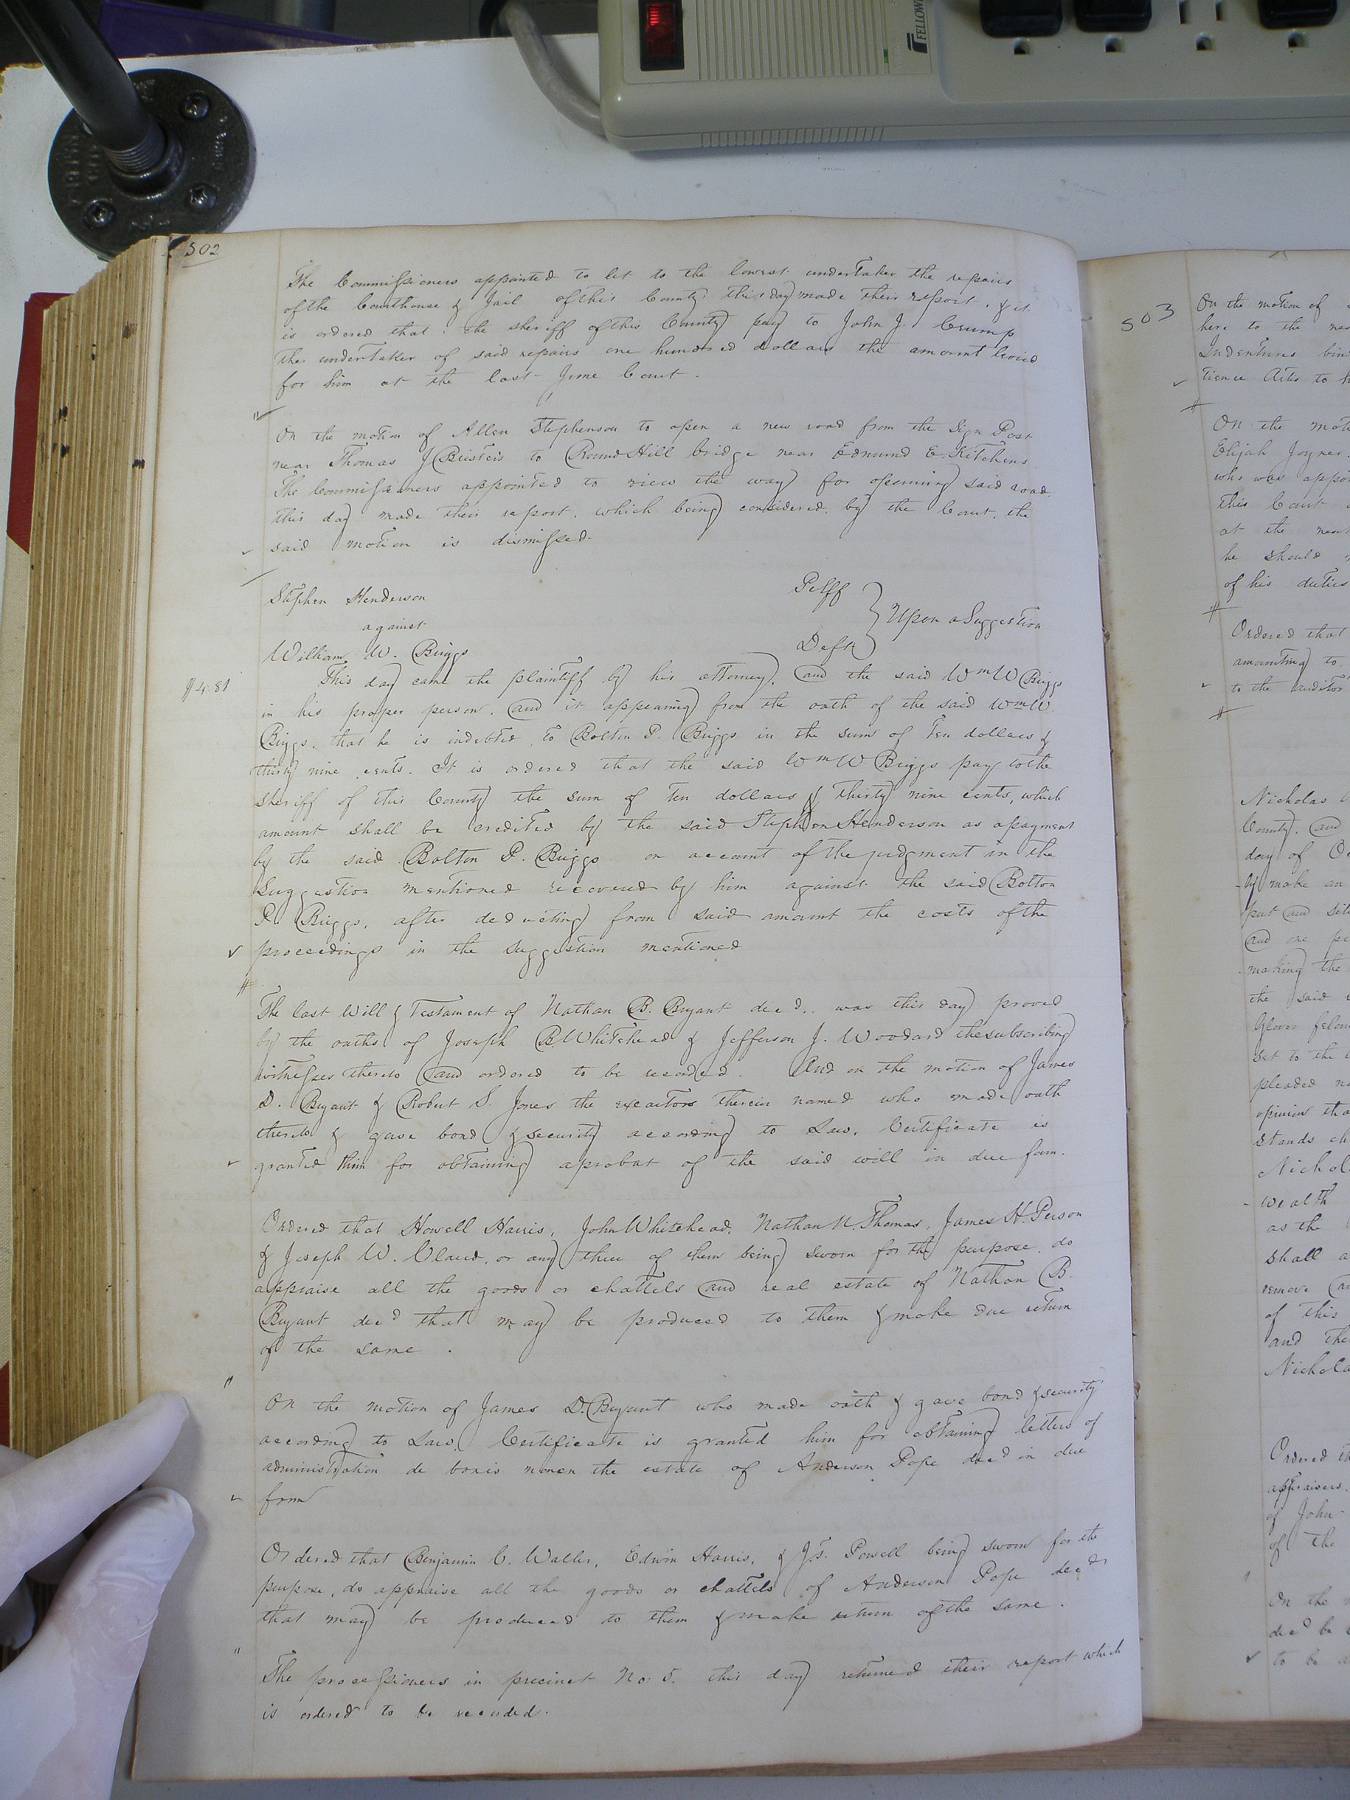 502
The Commissioners appointed to let to the lowest undertaker the repairs
of the Courthouse & Jail of this County this day made their report, & it
is ordered that the sheriff of this County pay to John J. Crump
the undertaker of said repairs one hundred dollars the amount levied
for him at the last June Court.
On the motion of Allen Stephenson to open a new road from the Sign Post
near Thomas J Bristers to Round Hill bridge near Edmund E. Kitchens
The Commissioners appointed to view the way for opening said road
this day made their report, which being considered by the Court, the
said motion is dismissed.
Stephen Henderson Pltff
against } Upon a Suggestion
William W. Briggs Deft
$4.81
This day came the plaintiff by his attorney, and the said Wm W Briggs
in his proper person, and it appearing from the oath of the said Wm W.
Briggs, that he is indebted to Bolton P. Briggs in the sum of Ten dollars &
thirty nine cents. It is ordered that the said Wm W Briggs pay to the
sheriff of this County the sum of ten dollars & thirty nine cents, which
amount shall be credited by the said Stephen Henderson as a payment
by the said Bolton P. Briggs on account of the judgment in the
Suggestion mentioned recovered by him against the said Bolton
P. Briggs, after deducting from said amount the costs of the
proceedings in the suggestion mentioned
The last Will & Testament of Nathan B. Bryant decd. was this day proved
by the oaths of Joseph B Whitehead & Jefferson J. Woodard the subscribing
witnesses thereto and ordered to be recorded. And on the motion of James
D. Bryant & Robert S Jones the executors therein named who made oath
thereto & gave bond & security according to Law, Certificate is
granted them for obtaining a probat of the said will in due form.
Ordered that Howell Harris, John Whitehead, Nathan N. Thomas, James H. Person
& Joseph W. Claud, or any three of them being sworn for the purpose, do
appraise all the goods or chattels and real estate of Nathan B.
Bryant decd that may be produced to them & make due return
of the same.
On the motion of James D. Bryant who made oath & gave bond & security
according to Law, Certificate is granted him for obtaining letters of
administration de bonis nonon the estate of Anderson Pope decd in due
form
Ordered that Benjamin C. Waller, Edwin Harris, & Jos. Powell being sworn for the
purpose, do appraise all the goods or chattels of Anderson Pope decd
that may be produced to them & make return of the same.
The processioners in precinct No. 5. this day returned their report which
is ordered to be recorded.
503
On the motion of
here to the
Indentures
tience Artis to
On the
Elijah Joyner
who was
this Court
at the
he should
of his duties
Ordered that
amounting to
to the auditor
Nicholas
County, and
day of
make an
put and
and one
making the
the said
Glover
set to the
pleaded
opinion
stands
wealth
as the
shall
remove
of this
and the
Ordered
appraisers
of John
of the
On the
decd be
to be
FELLOWES